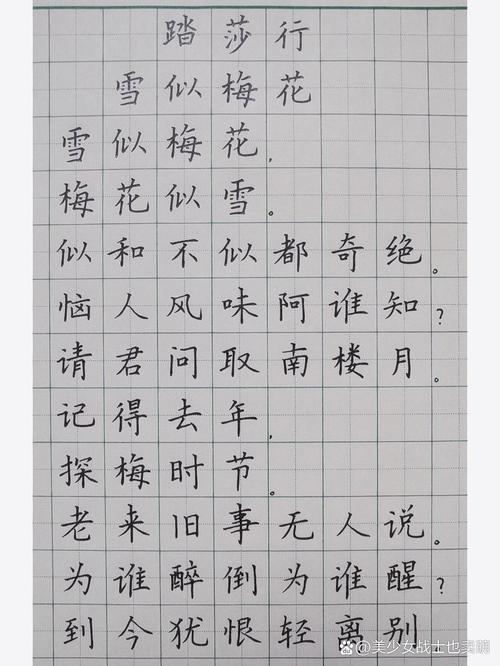 踏莎行
雪似梅花
雪似梅花,
梅花似雪。
似和不似都奇绝。
恼人风味阿谁知?
请君问取南楼月。
记得去年,
探梅时节。
老来旧事无人说。
为谁醉倒为谁醒?
到今犹恨轻离别
@美少女战士也卖萌